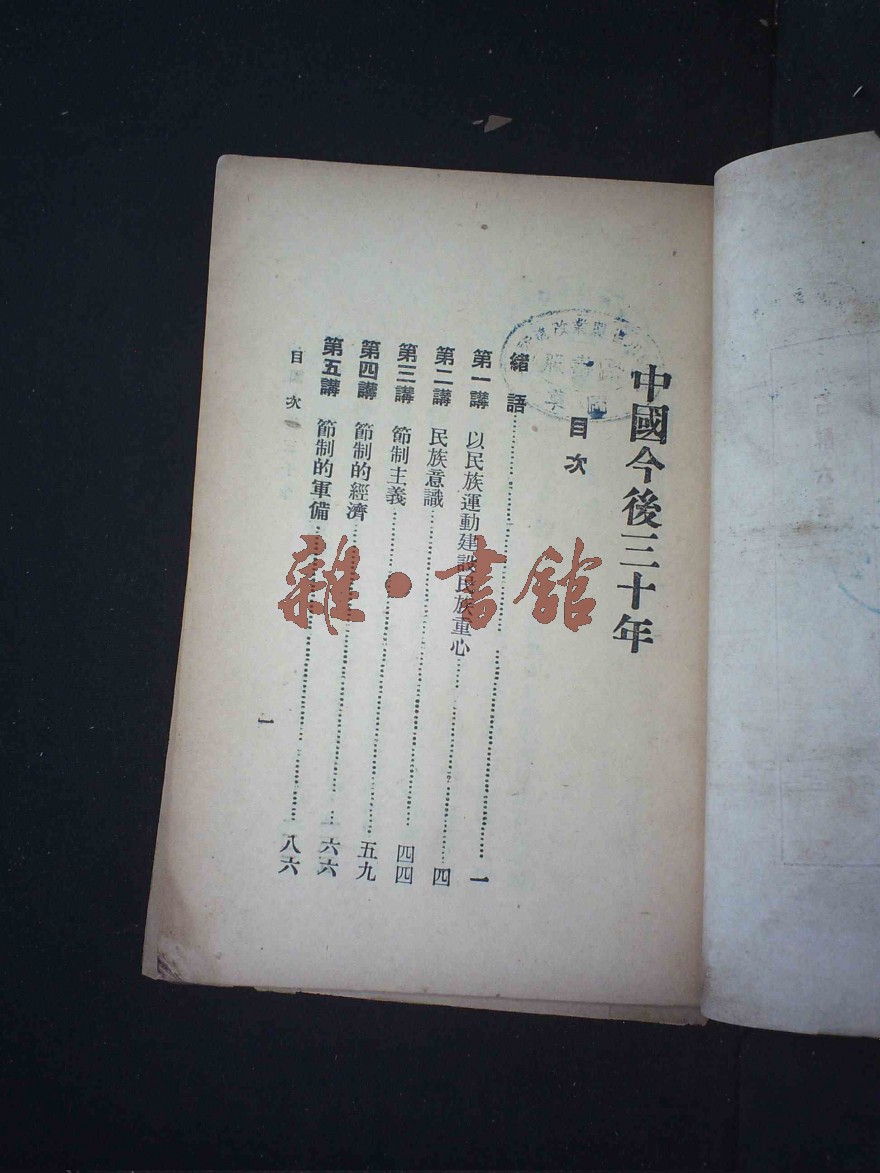 中國今後三十年
目次
緒語……………………一
第一講 以民族運動建設民族重心……………………四
第二講 民族意識……………………四四
第三講 節制主義……………………五九
第四講 節制的經濟……………………六六
第五講 節制的軍備……………………八六
目次
一
雜·書館